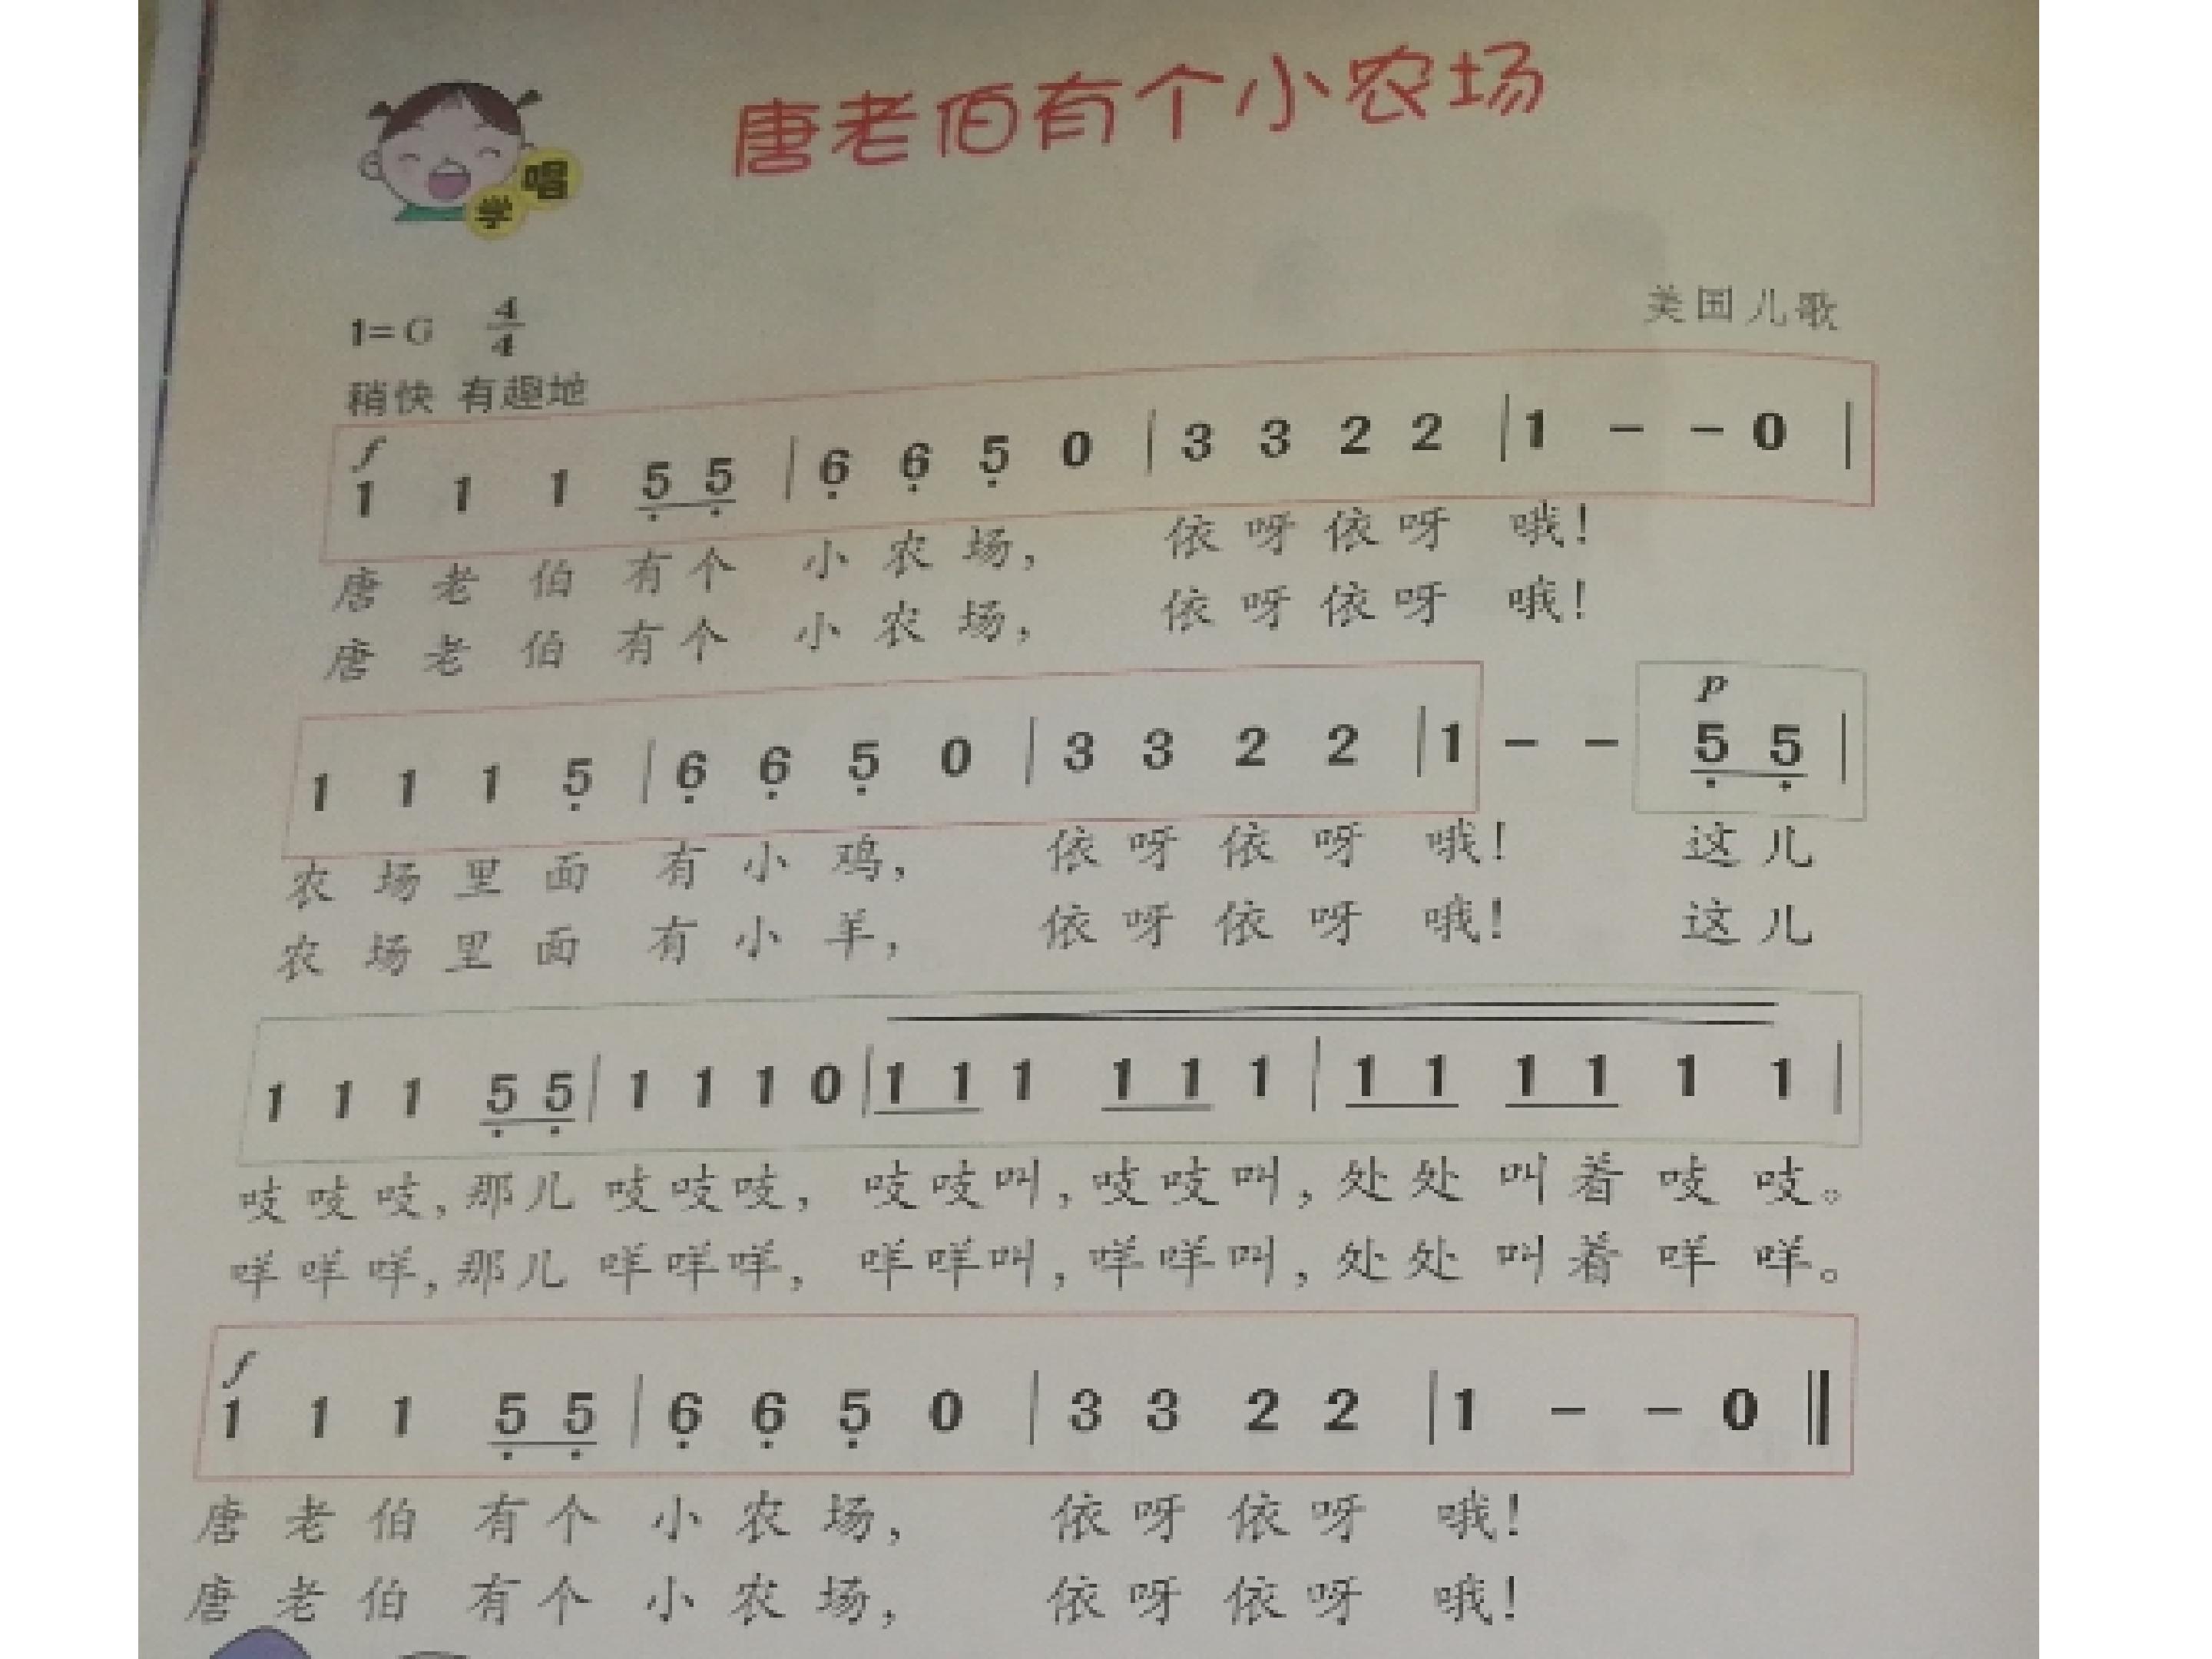 唐老伯有个小农场
学唱
1=G 4/4
美国儿歌
稍快 有趣地
f
1 1 1 5̣ 5̣ | 6̣ 6̣ 5̣ 0 | 3 3 2 2 | 1 - - 0 |
唐 老 伯 有 个 小 农 场， 依 呀 依 呀 哦！
唐 老 伯 有 个 小 农 场， 依 呀 依 呀 哦！
p
1 1 1 5̣ | 6̣ 6̣ 5̣ 0 | 3 3 2 2 | 1 - - 5̣ 5̣ |
农 场 里 面 有 小 鸡， 依 呀 依 呀 哦！ 这 儿
农 场 里 面 有 小 羊， 依 呀 依 呀 哦！ 这 儿
1 1 1 5̣ 5̣ | 1 1 1 0 | 1 1 1 1 1 1 | 1 1 1 1 1 1 |
吱 吱 吱，那 儿 吱 吱 吱， 吱 吱 叫，吱 吱 叫，处 处 叫 着 吱 吱。
咩 咩 咩，那 儿 咩 咩 咩， 咩 咩 叫，咩 咩 叫，处 处 叫 着 咩 咩。
f
1 1 1 5̣ 5̣ | 6̣ 6̣ 5̣ 0 | 3 3 2 2 | 1 - - 0 ‖
唐 老 伯 有 个 小 农 场， 依 呀 依 呀 哦！
唐 老 伯 有 个 小 农 场， 依 呀 依 呀 哦！